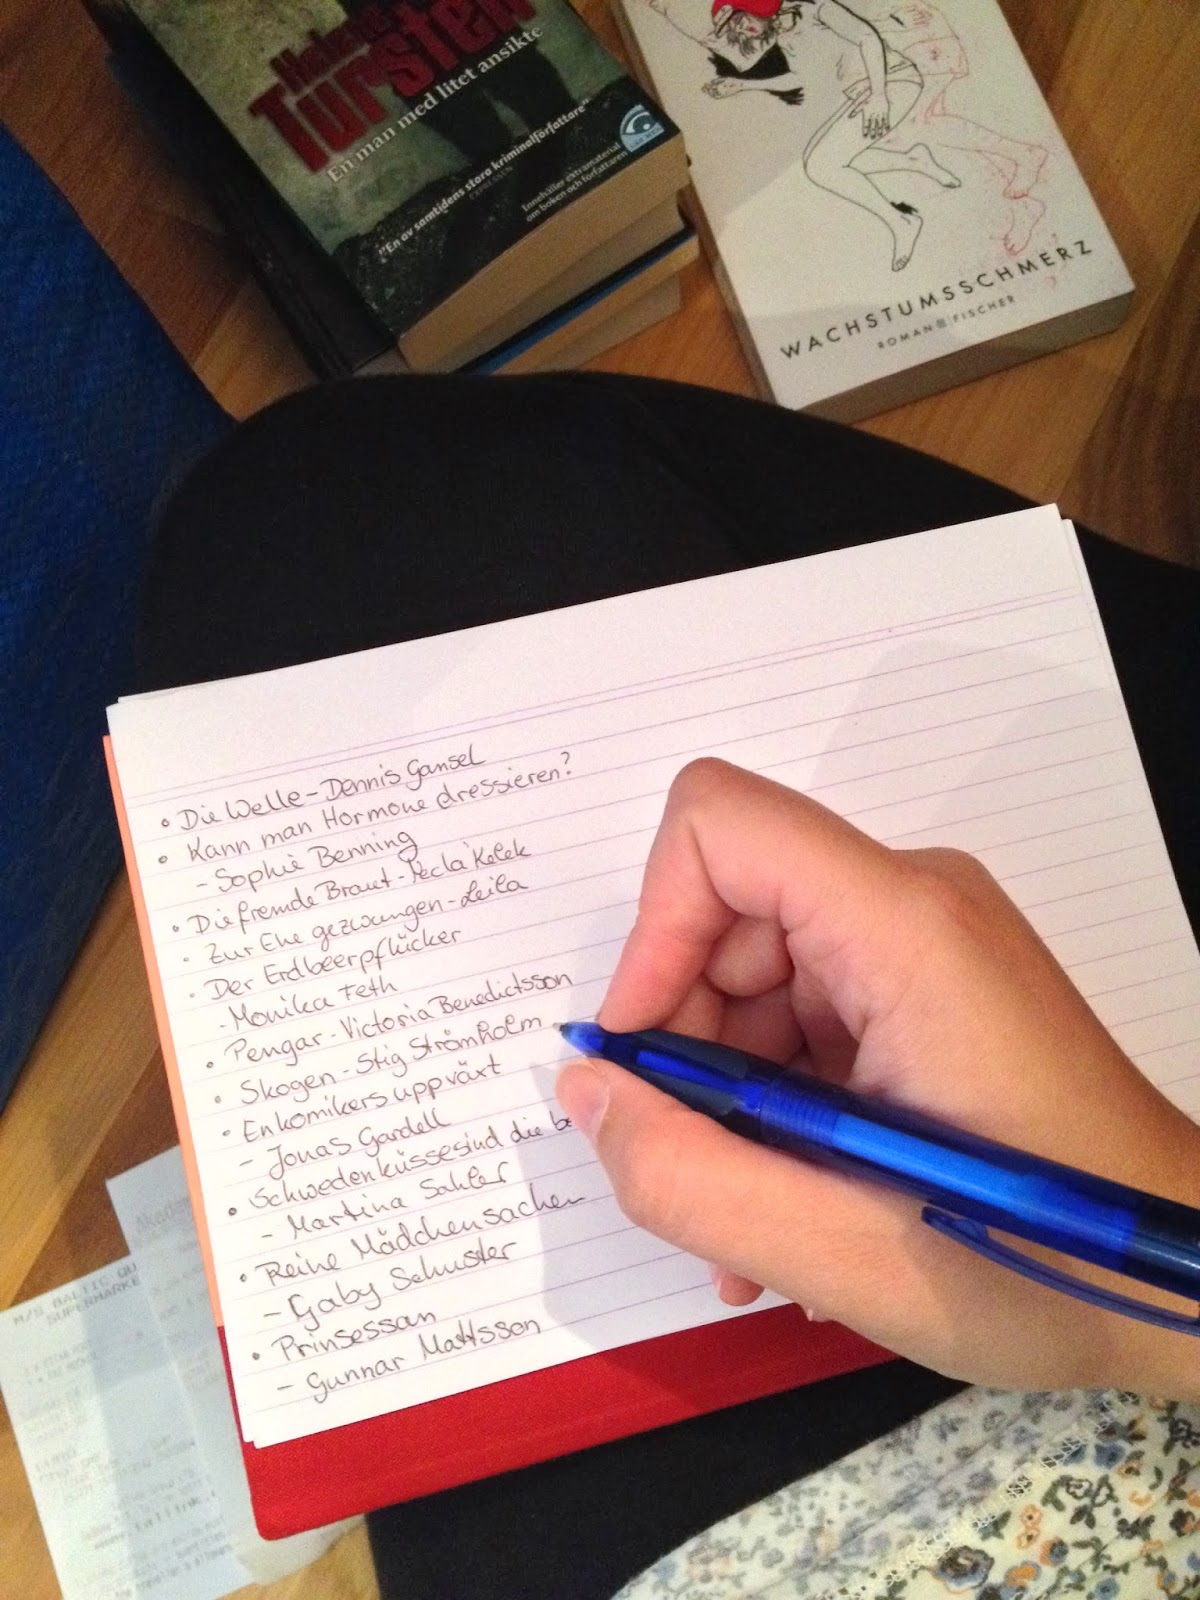 Helene
Tursten
En man med litet ansikte
"En av samtidens stora kriminalförfattare"
EXPRESSEN
Innehåller extramaterial
om boken och författaren
WACHSTUMSSCHMERZ
ROMAN FISCHER
• Die Welle - Dennis Gansel
• Kann man Hormone dressieren?
- Sophie Benning
• Die fremde Braut - Necla Kelek
• Zur Ehe gezwungen - Leila
• Der Erdbeerpflücker
- Monika Feth
• Pengar - Victoria Benedictsson
• Skogen - Stig Strömholm
• En komikers uppväxt
- Jonas Gardell
• Schwedenküsse sind die be
- Martina Sahler
• Reine Mädchensachen
- Gaby Schuster
• Prinsessan
- Gunnar Mattsson
M/S BALTIC QU
SUPERMARKE